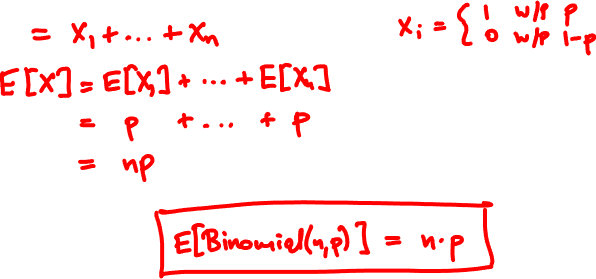 = X₁ + ... + Xₙ
Xᵢ = { 1 w/p p
0 w/p 1-p
E[X] = E[X₁] + ... + E[Xₙ]
= p + ... + p
= np
E[Binomial(n,p)] = n·p